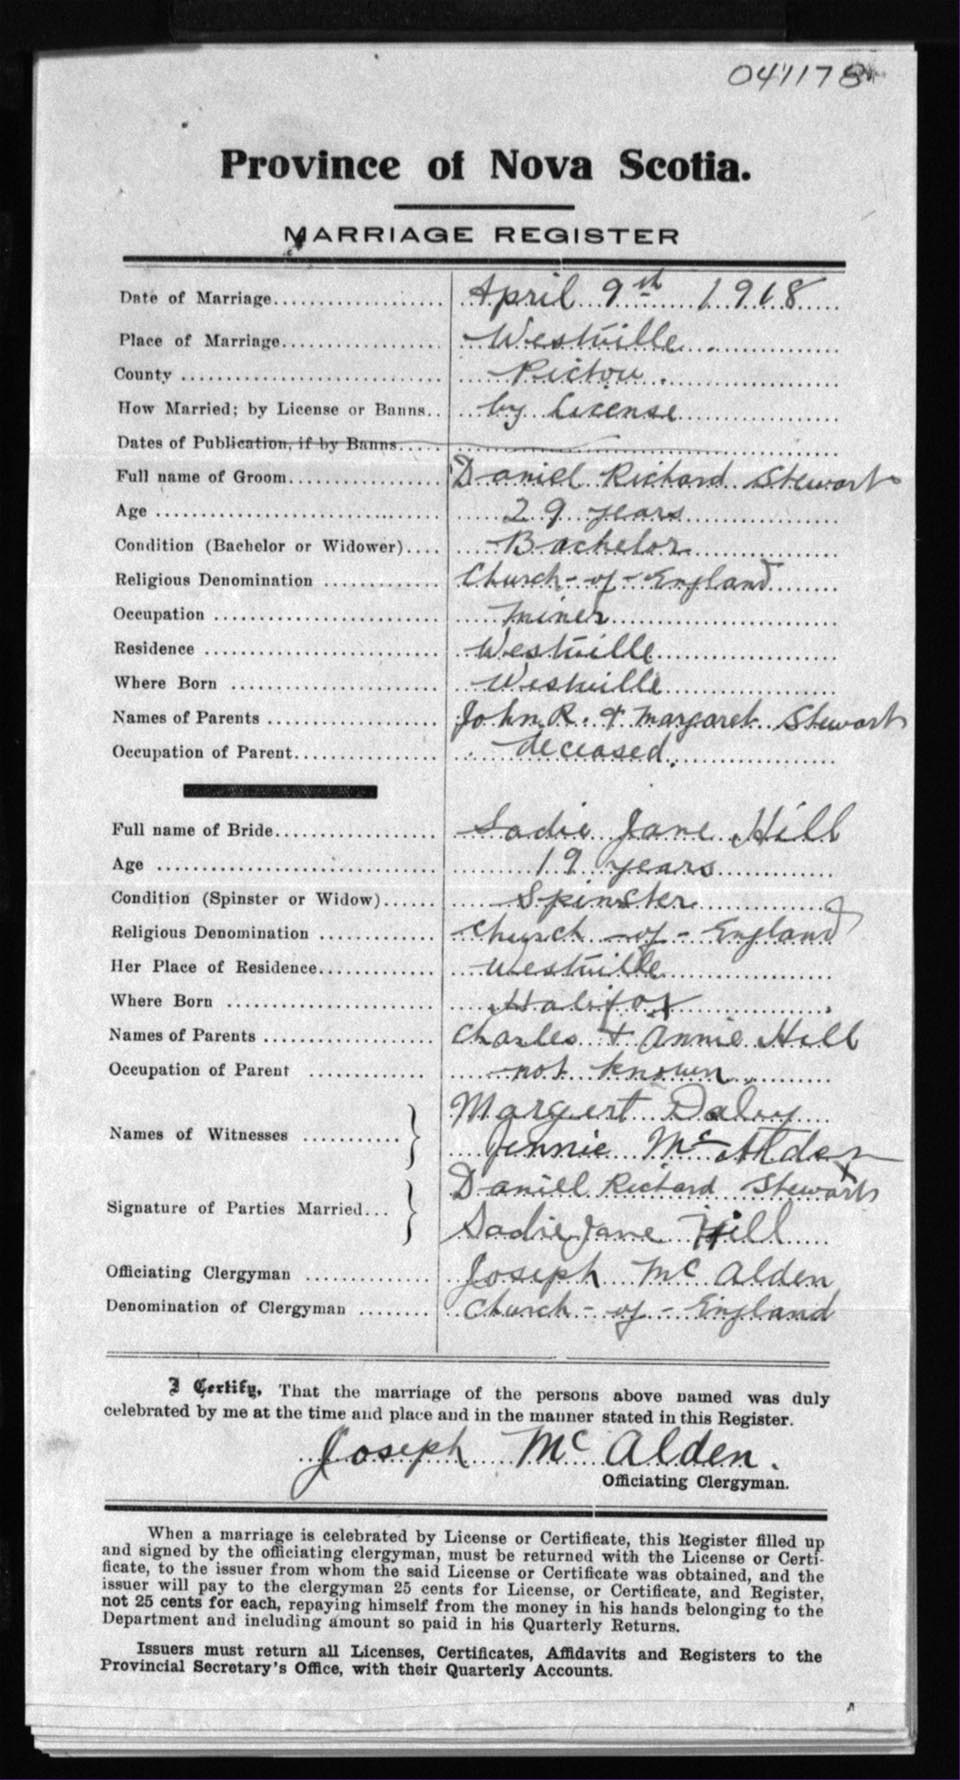 041178
Province of Nova Scotia.
MARRIAGE REGISTER
Date of Marriage April 9th 1918
Place of Marriage Westville
County Pictou.
How Married; by License or Banns by License
Dates of Publication, if by Banns
Full name of Groom Daniel Richard Stewart
Age 29 years
Condition (Bachelor or Widower) Bachelor
Religious Denomination Church-of-England
Occupation Miner
Residence Westville
Where Born Westville
Names of Parents John R. & Margaret Stewart
Occupation of Parent deceased.
Full name of Bride Sadie Jane Hill
Age 19 years
Condition (Spinster or Widow) Spinster
Religious Denomination Church-of-England
Her Place of Residence Westville
Where Born Halifax
Names of Parents Charles + Annie Hill
Occupation of Parent not known
Names of Witnesses Margert
Jennie McAlden
Signature of Parties Married Daniell Richard Stewart
Sadie Jane Hill
Officiating Clergyman Joseph McAlden
Denomination of Clergyman Church-of-England
I Certify, That the marriage of the persons above named was duly
celebrated by me at the time and place and in the manner stated in this Register.
Joseph McAlden.
Officiating Clergyman.
When a marriage is celebrated by License or Certificate, this Register filled up
and signed by the officiating clergyman, must be returned with the License or Certi-
ficate, to the issuer from whom the said License or Certificate was obtained, and the
issuer will pay to the clergyman 25 cents for License, or Certificate, and Register,
not 25 cents for each, repaying himself from the money in his hands belonging to the
Department and including amount so paid in his Quarterly Returns.
Issuers must return all Licenses, Certificates, Affidavits and Registers to the
Provincial Secretary's Office, with their Quarterly Accounts.